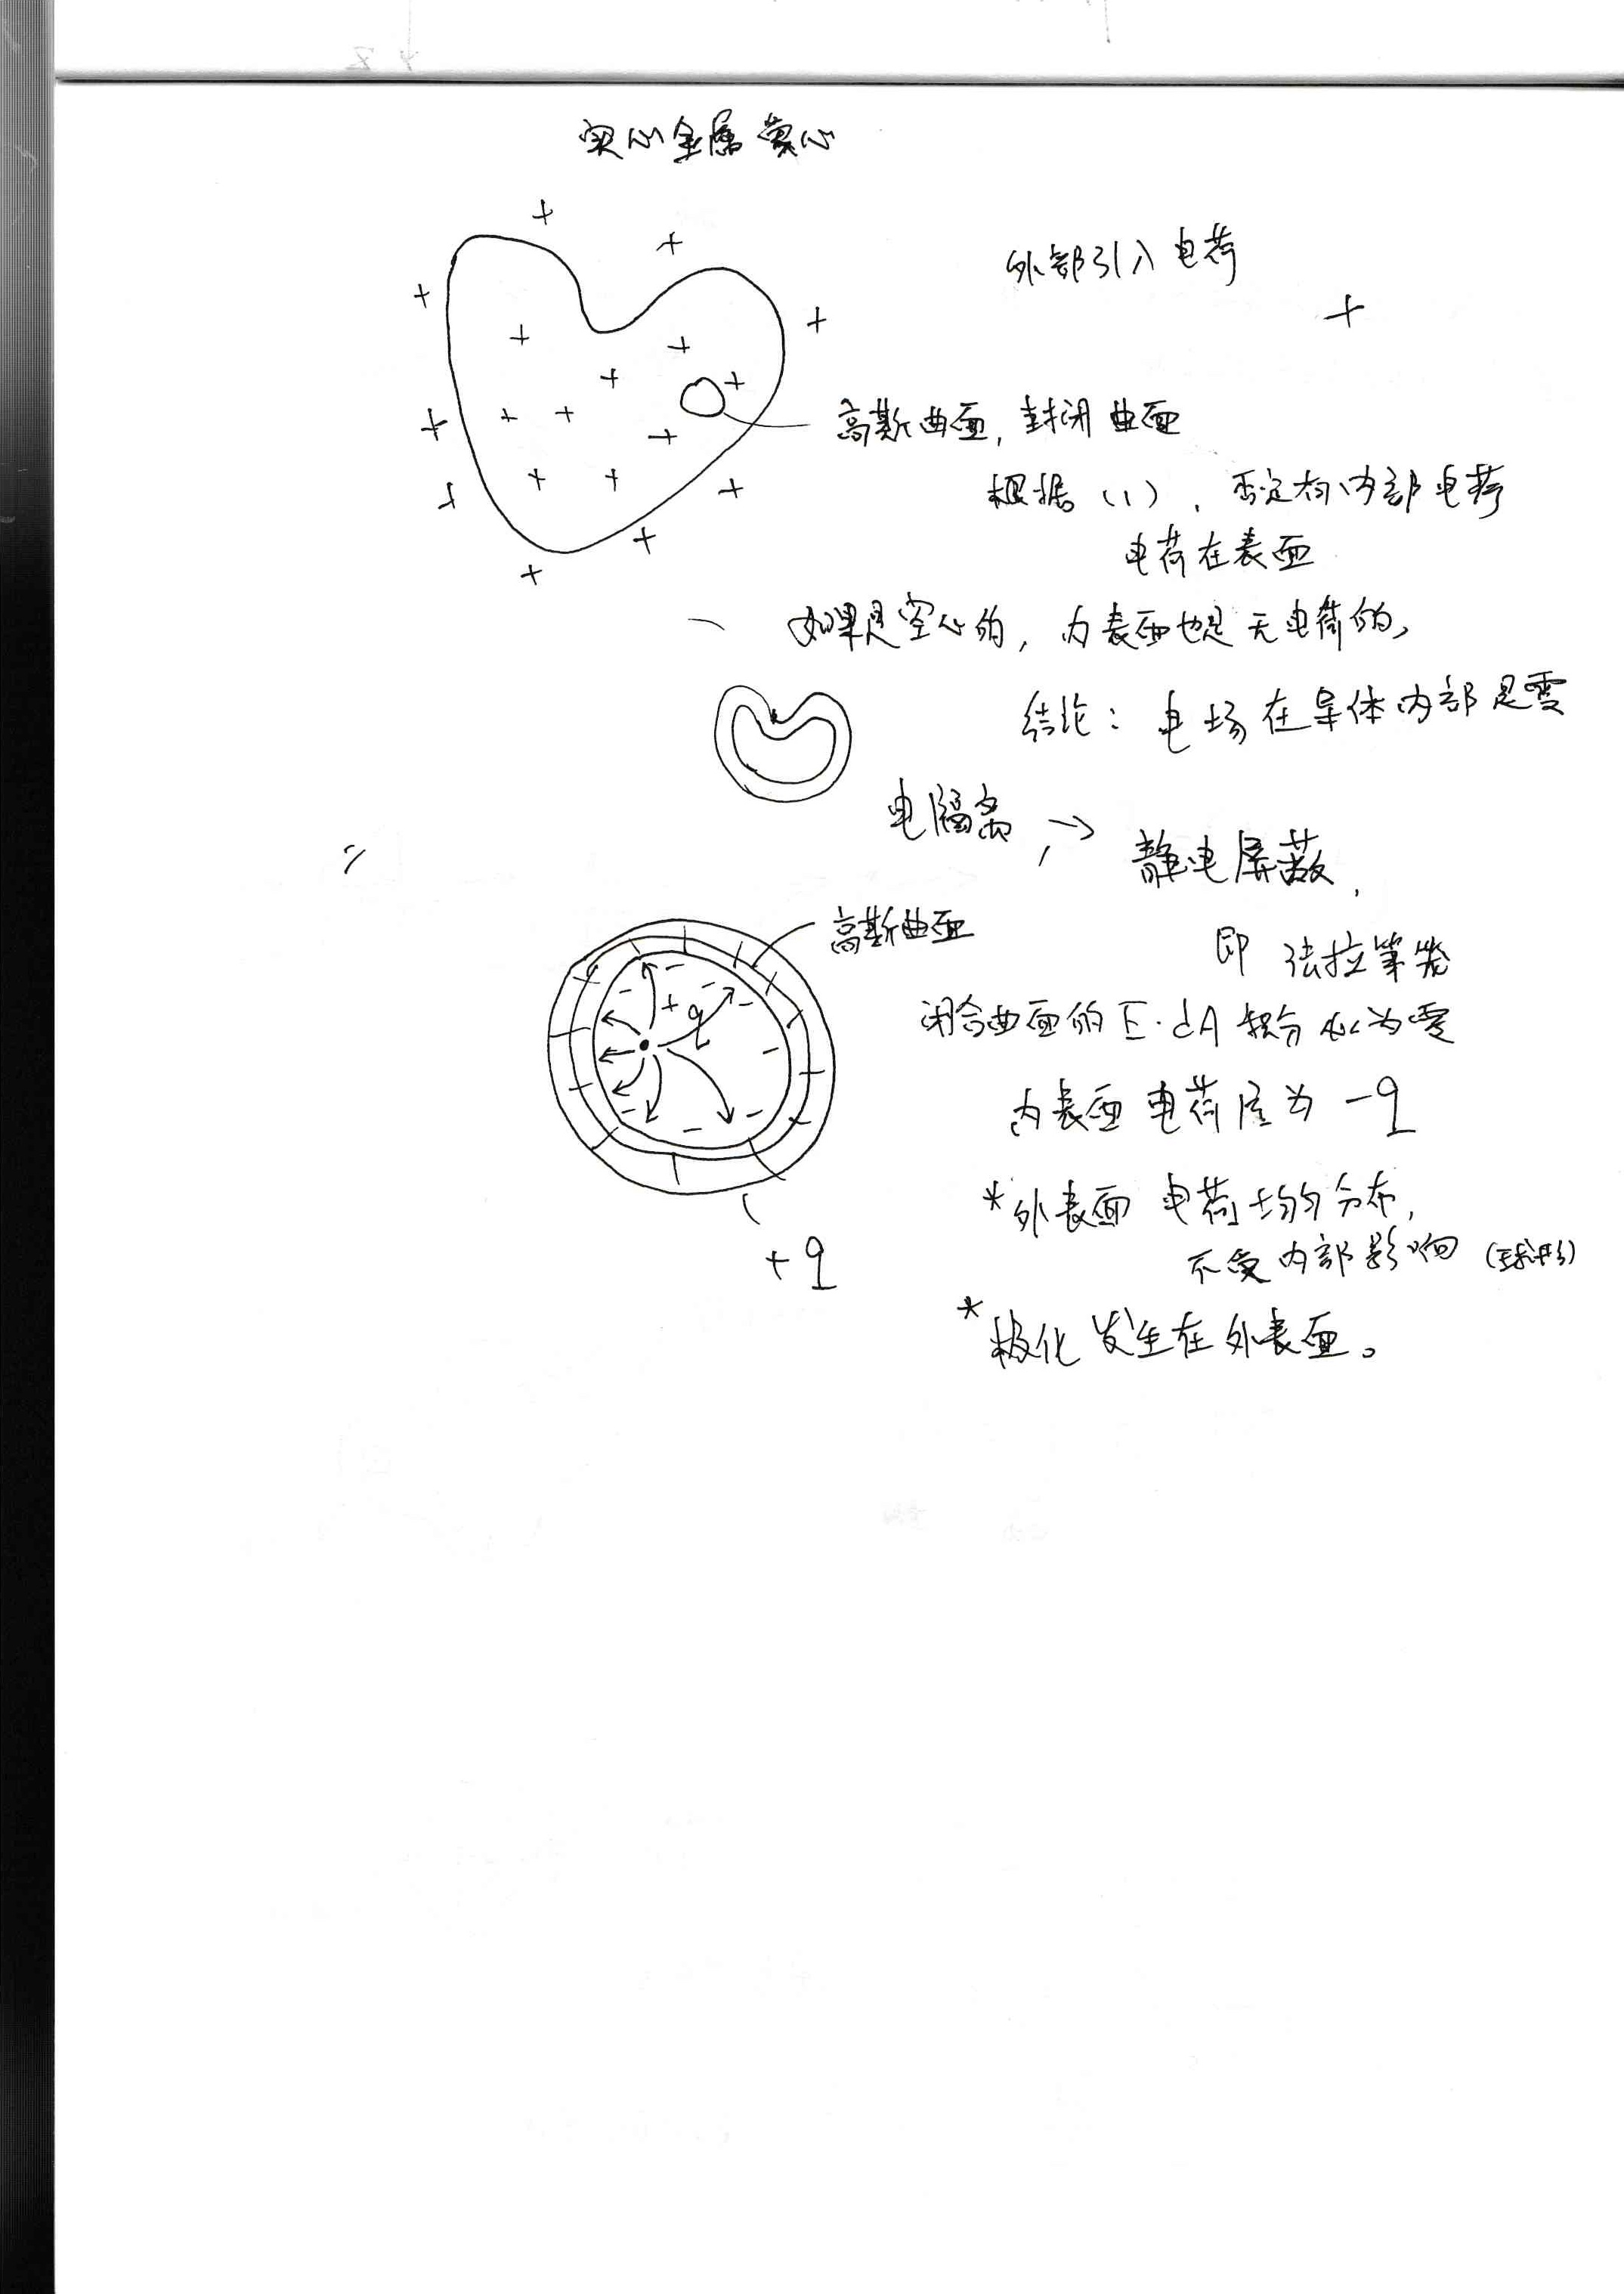 实心金属实心
外部引入电荷
高斯曲面,封闭曲面
根据(1),否定有内部电荷
电荷在表面
一 如果是空心的,内表面也是无电荷的,
结论:电场在导体内部是零
电隔离,→静电屏蔽,
二
高斯曲面
即 法拉第笼
闭合曲面的 E·dA 积分必为零
q
内表面电荷应为 -q
*外表面 电荷均匀分布,
不受内部影响(球形)
+q
*极化发生在外表面。